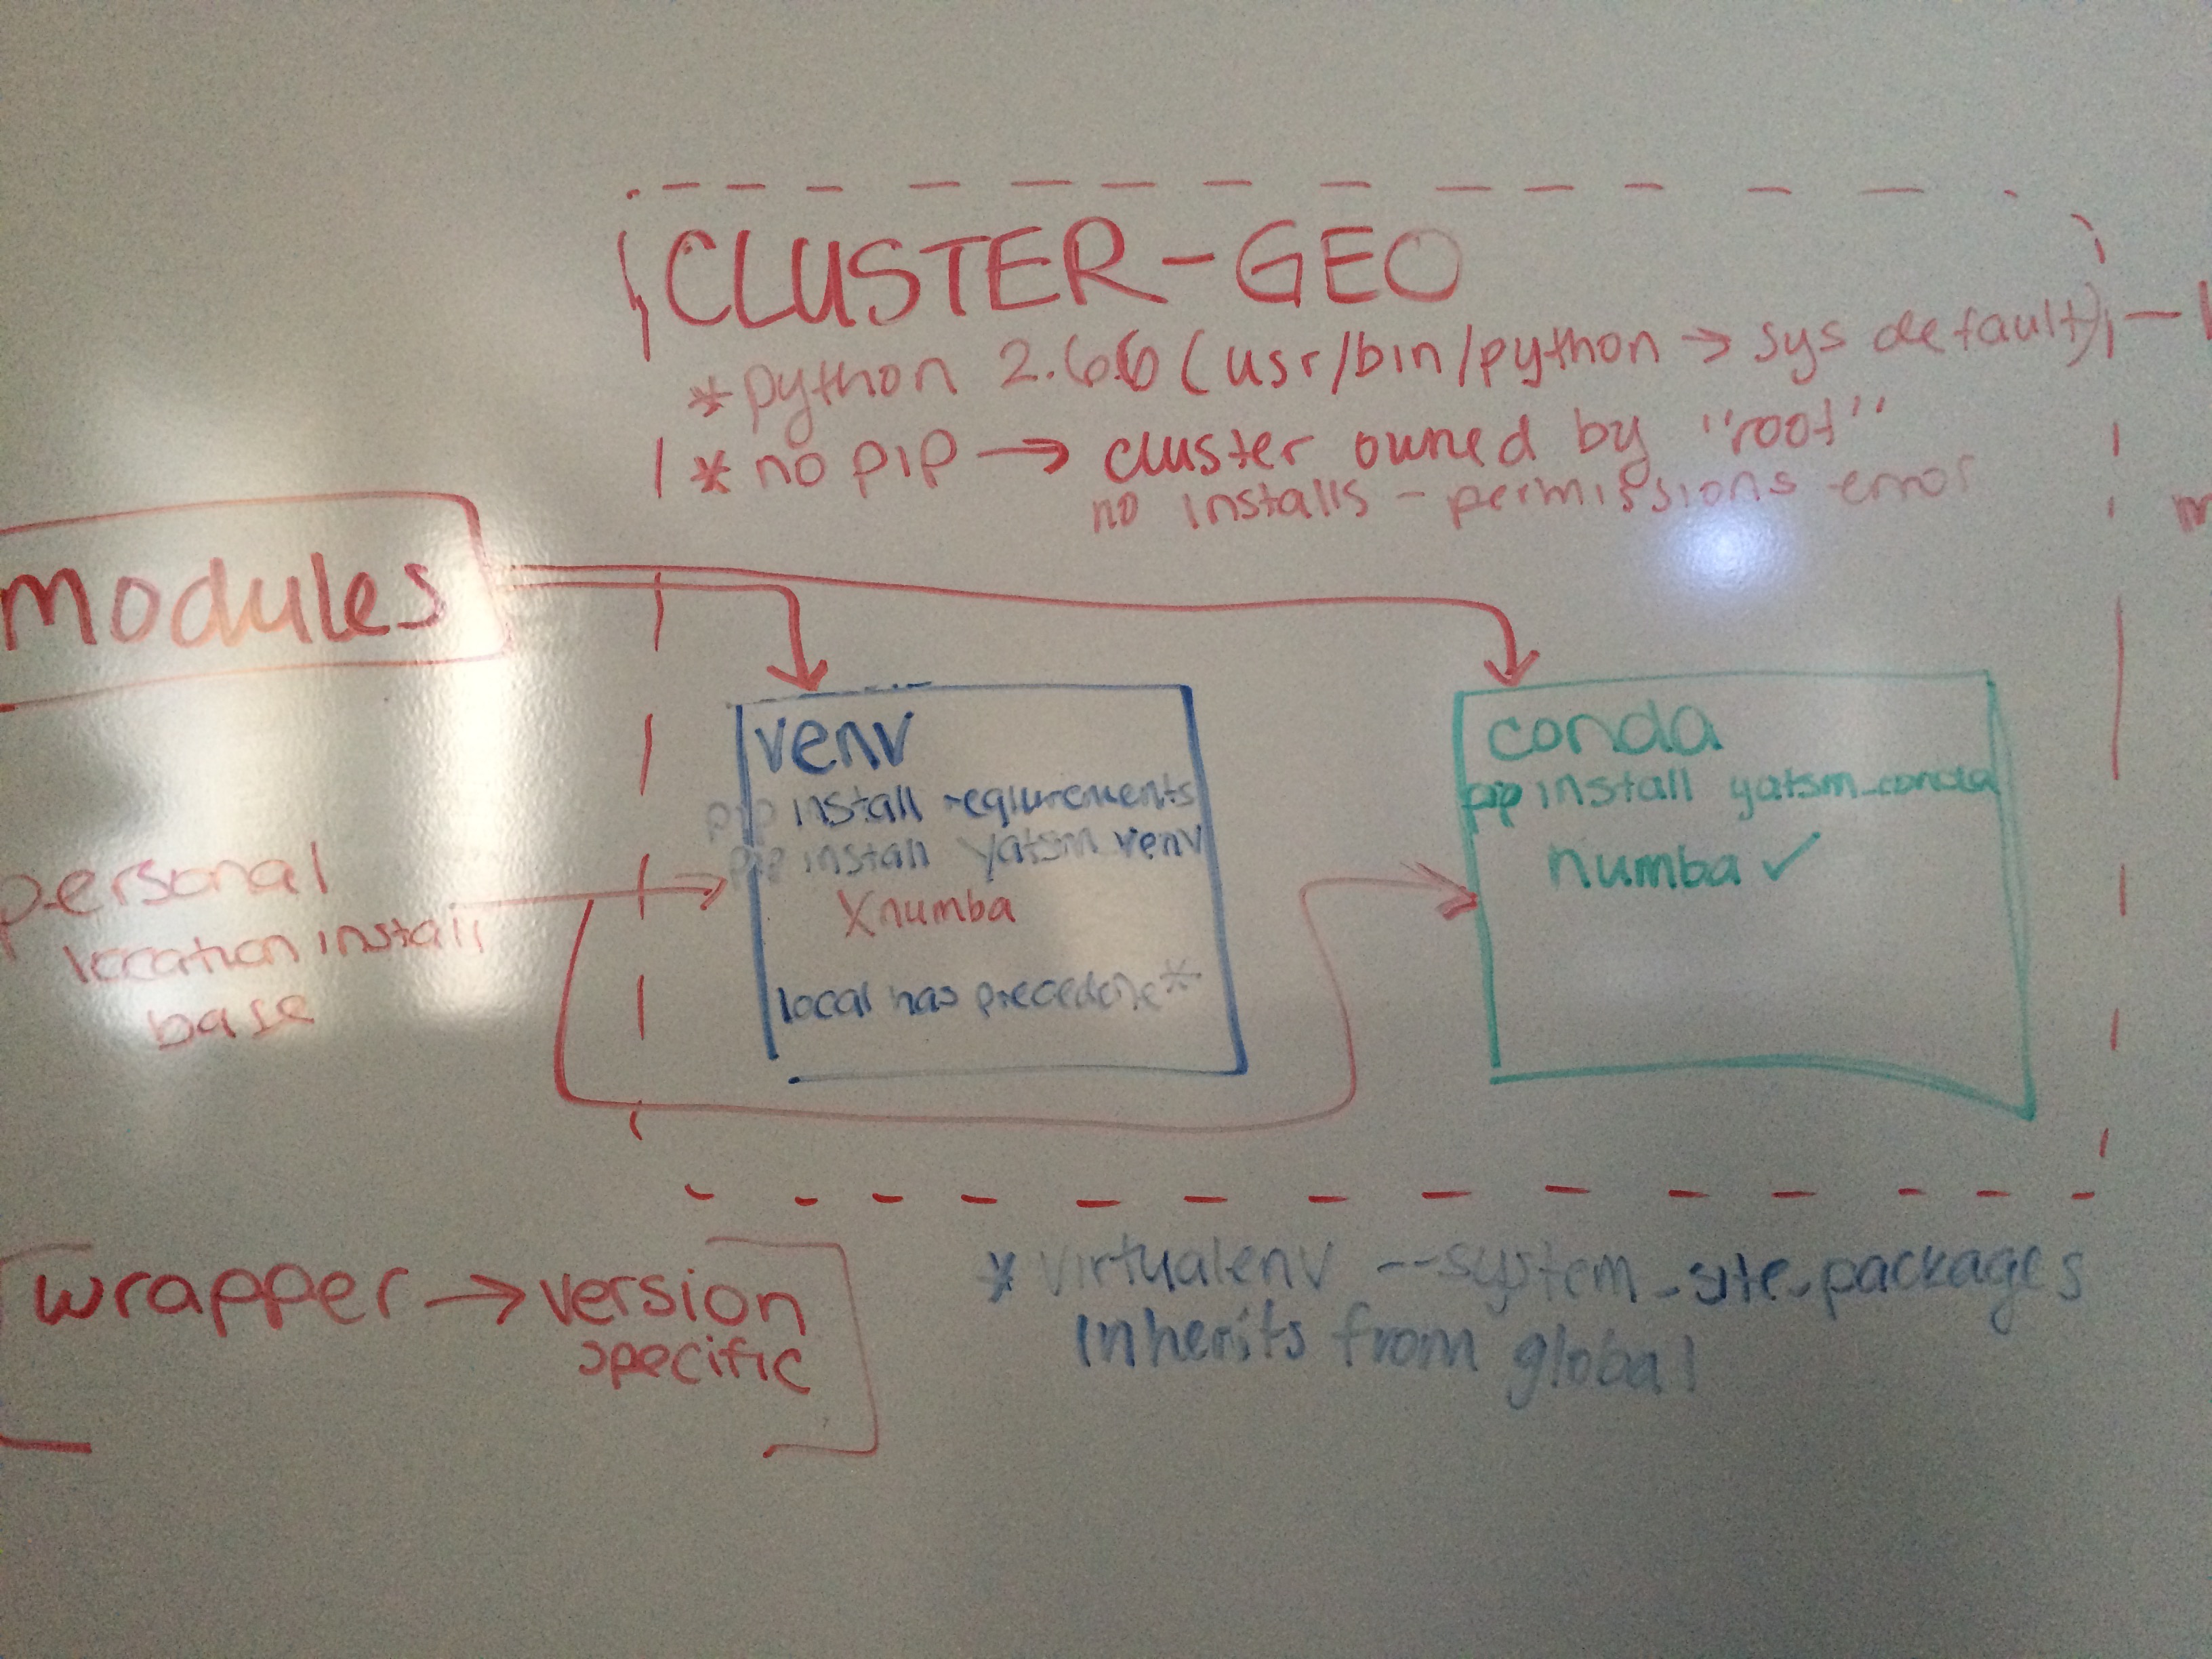 CLUSTER-GEO
*python 2.6.6 (usr/bin/python → sys default)
* no pip → cluster owned by "root"
no installs - permissions error
modules
venv
pip install reqiurements
pip install yatsm venv
X numba
local has precedence*
conda
pip install yatsm_conda
numba ✓
personal
location install
base
wrapper → version
specific
* virtualenv --system_site_packages
inherits from global